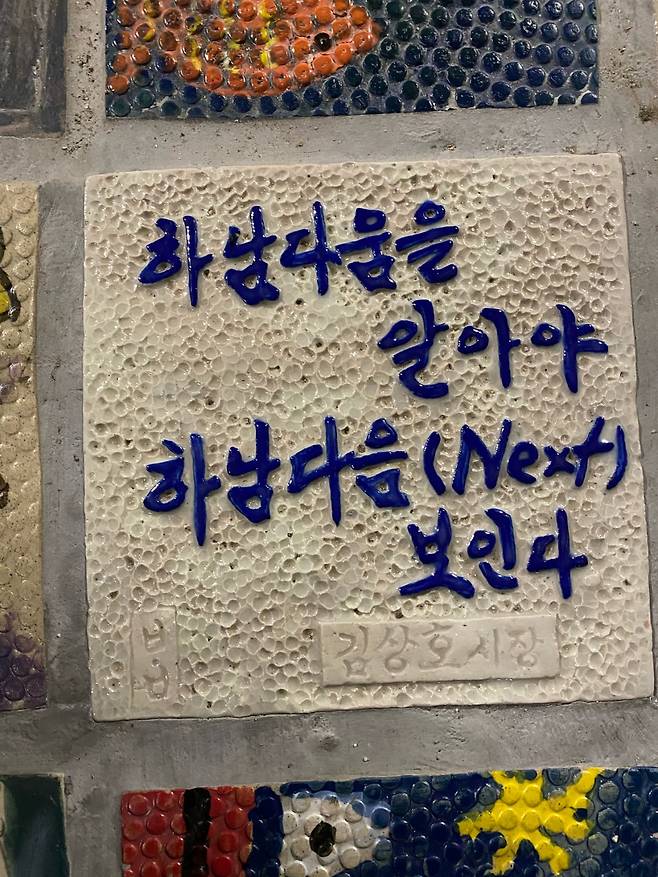 하남다움을
알아야
하남다음(Next)
보인다
김상호시장